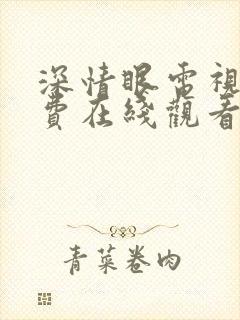 深情眼電視
費在綫觀看
青菜卷肉